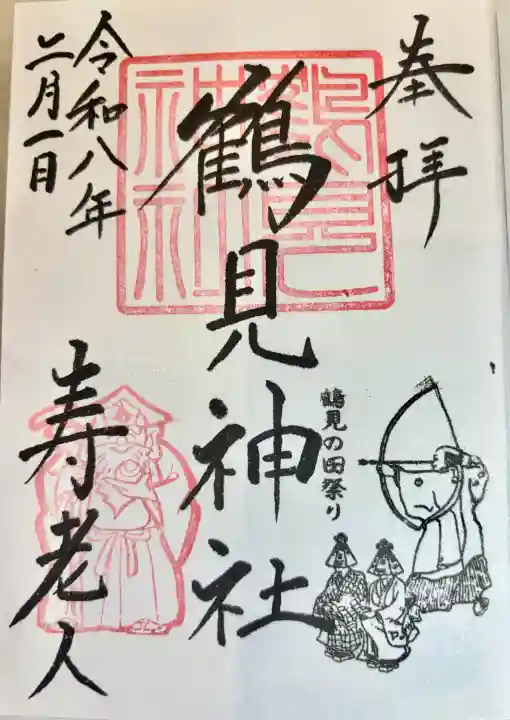 奉拝
鶴見神社
鶴見神社
鶴見の田祭り
寿老人
令和八年
二月一日